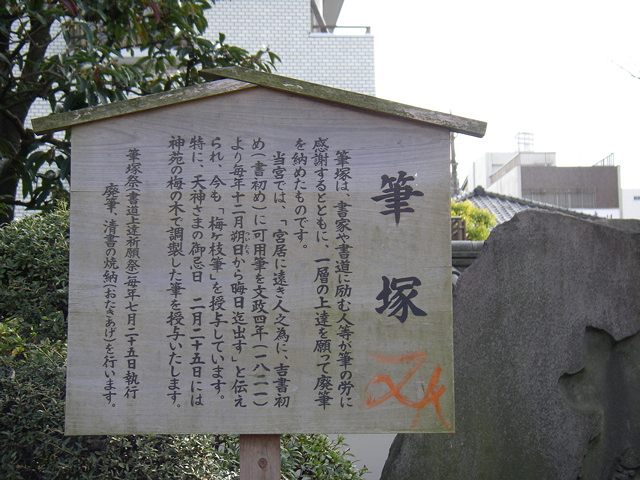 筆塚
筆塚は、書家や書道に励む人等が筆の労に
感謝するとともに、一層の上達を願って廃筆
を納めたものです。
当宮では、「宮居に遠き人之為に、吉書初
め(書初め)に可用筆を文政四年(一八二一)
より毎年十二月朔日から晦日迄出す」と伝え
られ、今も「梅ヶ枝筆」を授与しています。
特に、天神さまの御忌日 二月二十五日には
神苑の梅の木で調製した筆を授与いたします。
筆塚祭(書道上達祈願祭)毎年七月二十五日執行
廃筆、清書の焼納(おたきあげ)を行います。